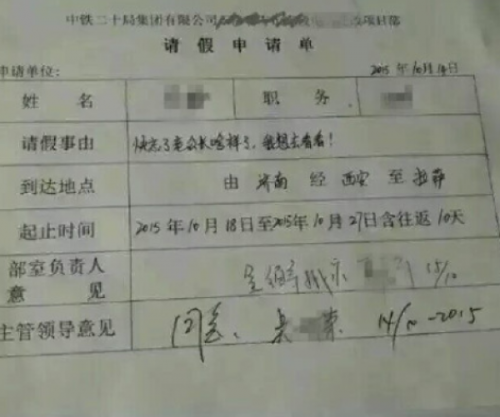 中铁二十局集团有限公司 项目部
请假申请单
申请单位： 2015年10月14日
姓名 职务
请假事由 快忘了老公长啥样了，我想去看看！
到达地点 由 济南 经 西安 至 拉萨
起止时间 2015年10月18日至2015年10月27日含往返10天
部室负责人
意见 15/10
主管领导意见 同意、 14/10-2015